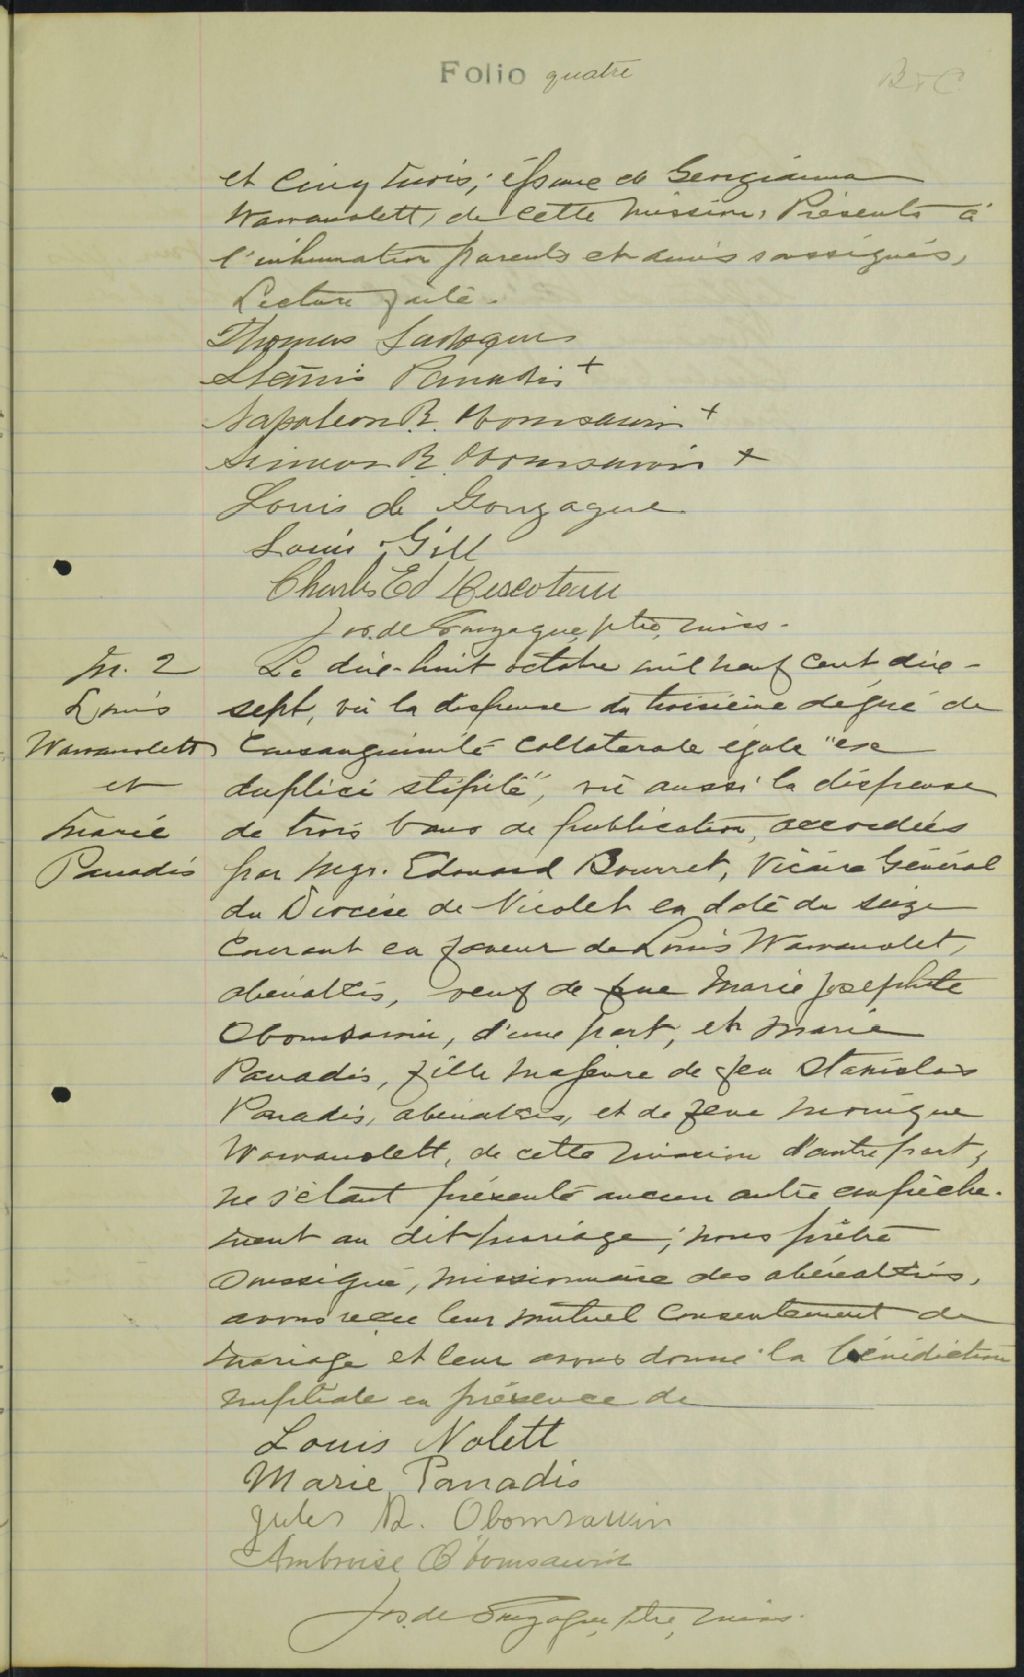 Folio quatre
B & C
et cinq mois, époux de Georgianna
Wawanolett, de cette mission. Présents à
l'inhumation parents et amis soussignés,
Lecture faite.
Thomas
Stanis Panadis +
Napoleon R. Obomsawin +
Simeon R. Obomsawin +
Louis de Gonzague
Louis Gill
Charles Ed
Jos. de Gonzague, ptre, miss.
M. 2
Louis
Wawanolett
et
Marie
Panadis
Le dix-huit octobre mil neuf cent dix-
sept, vu la dispense du troisième dégré de
Consanguinité collaterale égale "ex
duplici stipite", vu aussi la dispense
de trois bans de publication, accordées
par Mgr. Edouard Bourret, Vicaire Général
du Diocèse de Nicolet en date du seize
Courant en faveur de Louis Wawanolet,
abénakis, veuf de feue Marie Josephte
Obomsawin, d'une part, et Marie
Panadis, fille majeure de feu Stanislas
Panadis, abénakis, et de feue Monique
Wawanolett, de cette mission d'autre part,
ne s'étant présenté aucun autre empêche-
ment au dit mariage; nous prêtre
Soussigné, missionnaire des abénakis,
avons reçu leur mutuel consentement de
mariage et leur avons donné la bénédiction
nuptiale en présence de
Louis Nolett
Marie Panadis
Jules R. Obomsawin
Ambroise O'bomsawin
Jos. de Gonzague, ptre, miss.